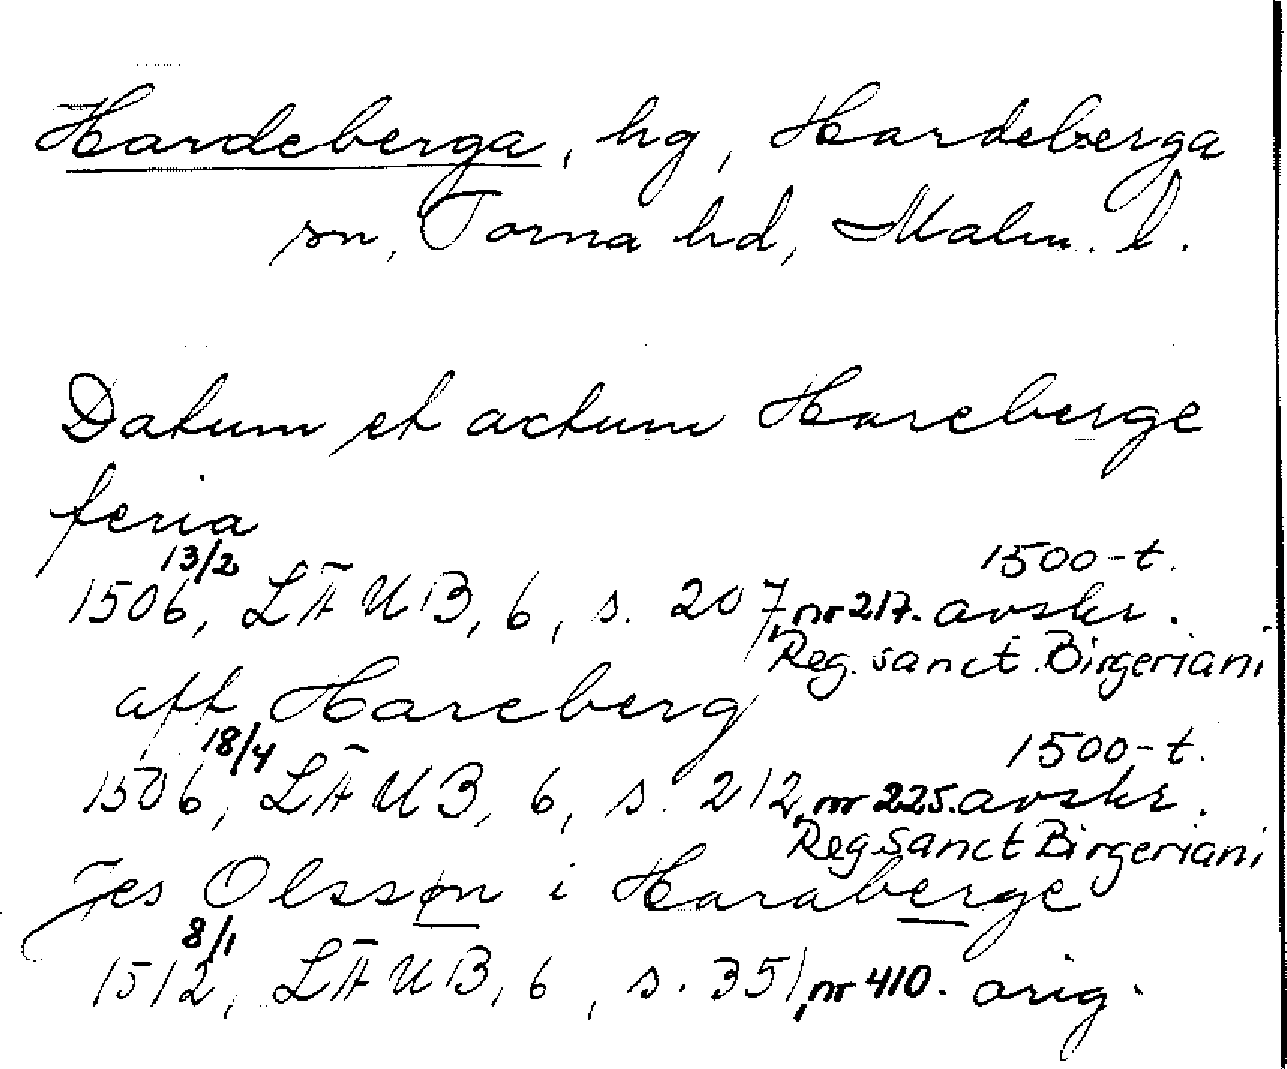 Hardeberga, hg, Hardeberga
sn, Torna hd, Malm. l.
Datum et actum Hareberge
feria
1506 13/2, LÄUB, 6, s. 207, nr 217. 1500-t. avskr.
Reg. sanct. Birgeriani
aff Hareberg
1506 18/4, LÄUB, 6, s. 212, nr 225. 1500-t. avskr.
Reg. sanct Birgeriani
Jes Olssøn i Haraberge
1512 8/1, LÄUB, 6, s. 351, nr 410. orig.